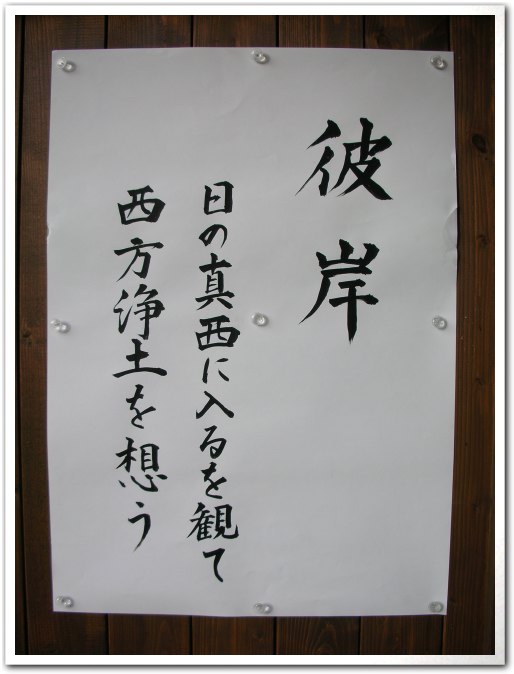 彼岸
日の真西に入るを観て
西方浄土を想う